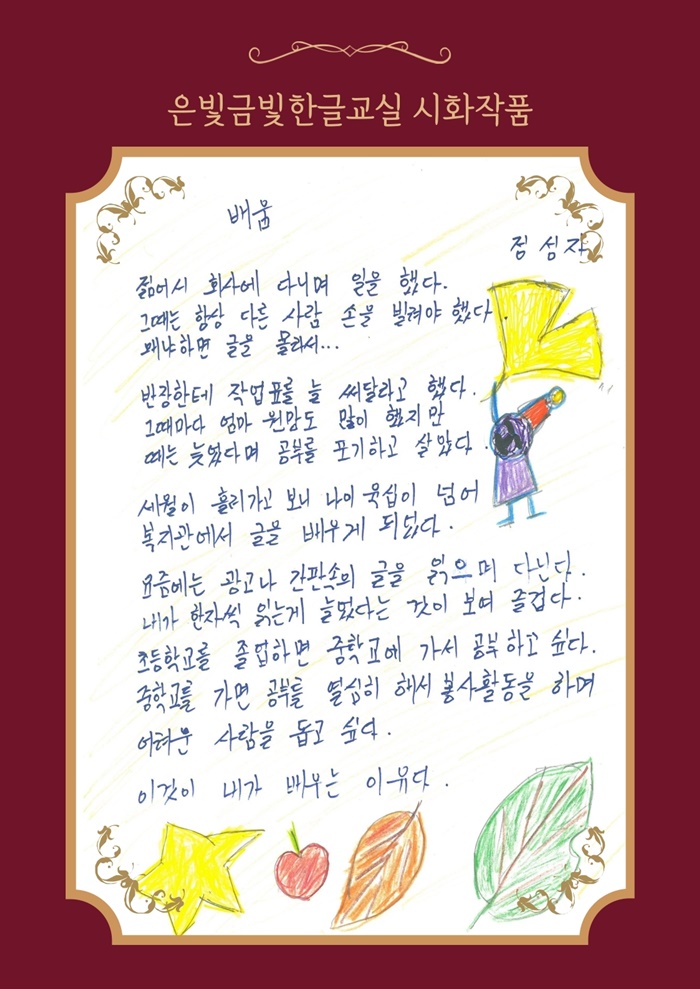 은빛금빛한글교실 시화작품
배움
정 심자
젊어서 회사에 다니며 일을 했다.
그때는 항상 다른 사람 손을 빌려야 했다.
왜냐하면 글을 몰라서...
반장한테 작업표를 늘 써달라고 했다.
그때마다 엄마 원망도 많이 했지만
때는 늦었다며 공부를 포기하고 살았다.
세월이 흘러가고 보니 나이 육십이 넘어
복지관에서 글을 배우게 되었다.
요즘에는 광고나 간판속의 글을 읽으며 다닌다.
내가 한자씩 읽는게 늘었다는 것이 보여 즐겁다.
초등학교를 졸업하면 중학교에 가서 공부하고 싶다.
중학교를 가면 공부를 열심히 해서 봉사활동을 하며
어려운 사람을 돕고 싶다.
이것이 내가 배우는 이유다.